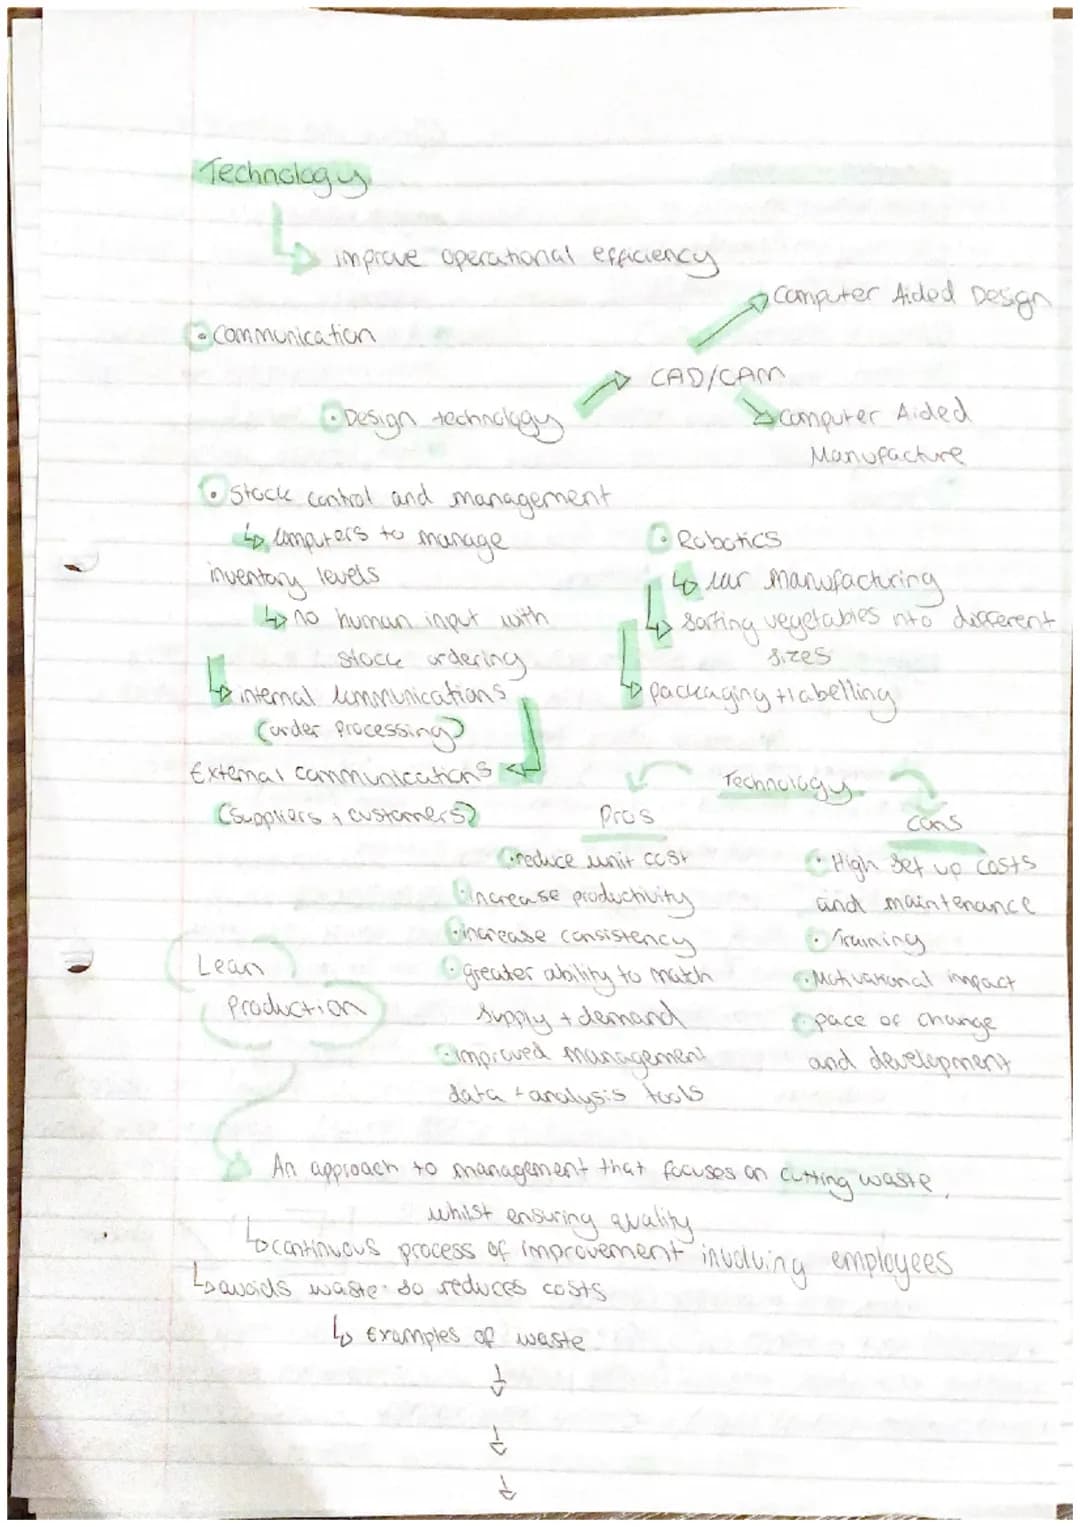 Technology
improve operational efficiency
Computer Aided Design
• Communication
CAD/CAM
• Design technology
Computer Aided
Manufacture
• Stock control and management
↳ computers to manage
inventory levels
↳ no human input with
stock ordering
↳ internal communications
(order processing)
External communications
(suppliers + customers)
• Robotics
↳ car manufacturing
↳ sorting vegetables into different
sizes
↳ packaging + labelling
Technology
Pros
• reduce unit cost
• increase productivity
• increase consistency
• greater ability to match
supply + demand
• improved management
data + analysis tools
Cons
• High set up costs
and maintenance
• Training
• Motivational impact
• pace of change
and development
Lean
Production
An approach to management that focuses on cutting waste,
whilst ensuring quality
↳ continuous process of improvement involving employees
↳ avoids waste so reduces costs
↳ Examples of waste